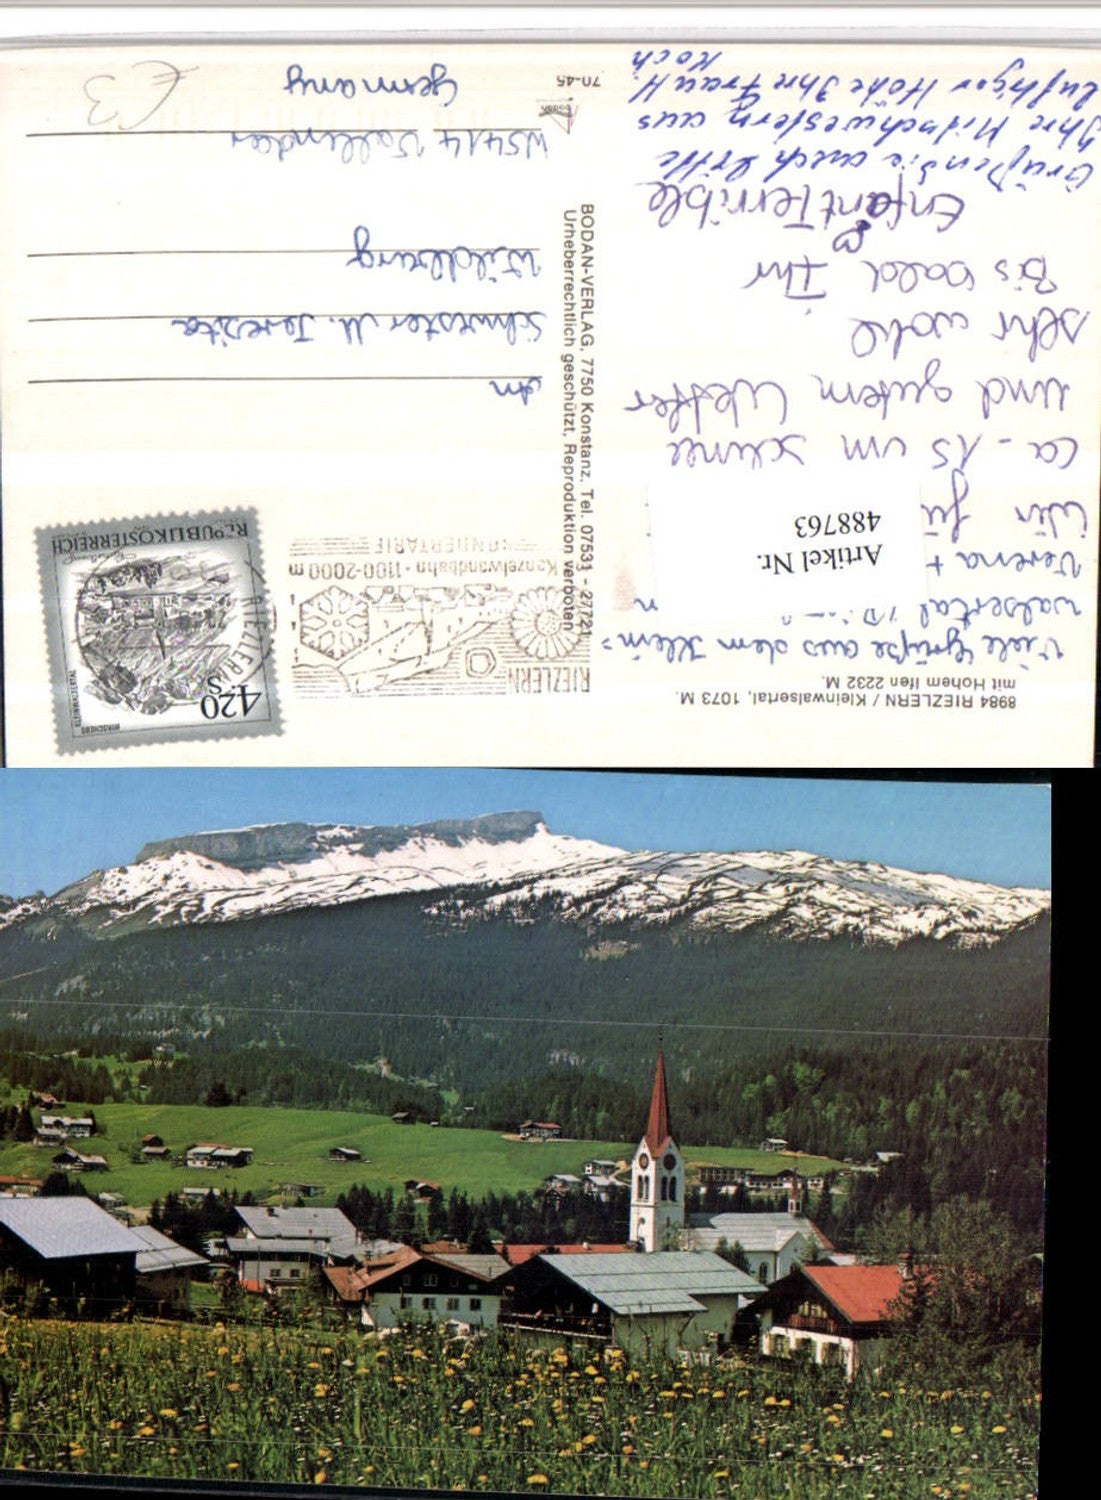 8984 RIEZLERN / Kleinwalsertal, 1073 M.
mit Hohem Ifen 2232 M.
Viele Grüße aus dem Klein=
walsertal
Verena +
Wir
ca. 15 cm Schnee
und gutem Wetter
sehr wohl
Bis bald Ihr
Enfant Terrible
Grüßen Sie auch bitte
Ihre Mitschwestern aus
luftiger Höhe Ihre Frau H.
Koch
Artikel Nr.
488763
BODAN-VERLAG, 7750 Konstanz, Tel. 07531 - 27721
Urheberrechtlich geschützt, Reproduktion verboten
RIEZLERN
Kanzelwandbahn · 1100-2000 m
WANDERTARIF
RIEZLERN
4.20
S
HIRSCHEGG
KLEINWALSERTAL
REPUBLIK ÖSTERREICH
An
Schwester M. Terezita
Wildburg
W5414 Vallendar
Germany
bodan
70-45
€3